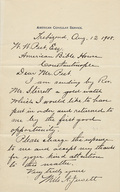 American Consular Service
Trebizond, Aug. 12, 1908.
W. W. Peet Esq.
American Bible House
Constantinople.
Dear Mr. Peet
I am sending by Rev.
Mr. Stowell a gold watch
which I would like to have
put in order and returned to
me by the first good
opportunity.
Please charge the expense
to me and accept my thanks
for your kind attention
to this matter.
Very truly yours,
Milo A. Jewett